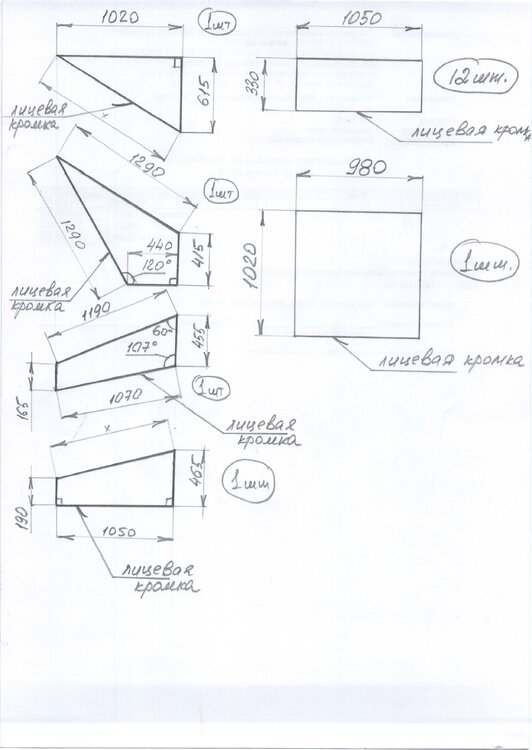 1020
1шт
615
х
лицевая
кромка
1050
330
12шт.
лицевая кромк
1290
1шт
1290
440
120°
415
лицевая
кромка
980
1020
1шт.
лицевая кромка
1190
60°
107°
455
165
1070
1шт
лицевая
кромка
х
465
190
1шт
1050
лицевая
кромка